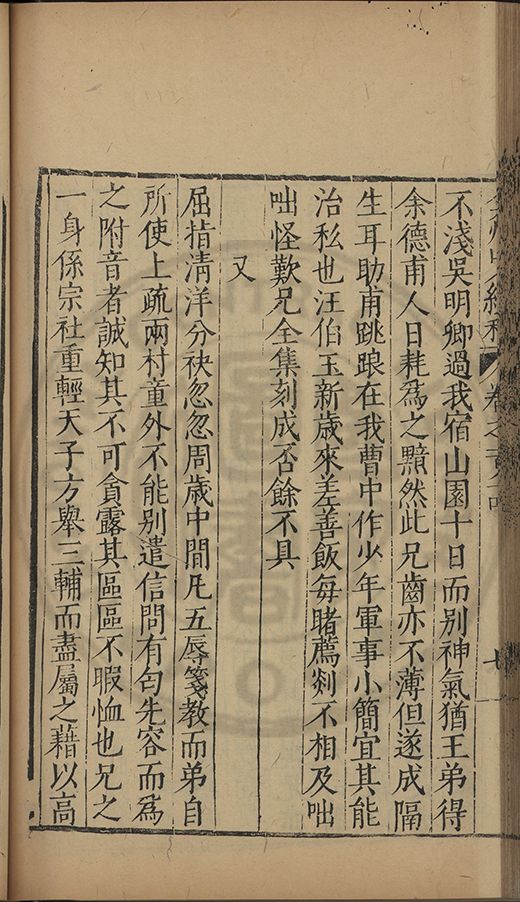 不淺吳明卿過我宿山園十日而別神氣猶王弟得
余德甫人日耗爲之黯然此兄齒亦不薄但遂成隔
生耳助甫跳踉在我曹中作少年軍事小簡宜其能
治私也汪伯玉新歲來差善飯每睹薦剡不相及咄
咄怪歎兄全集刻成否餘不具
又
屈指清洋分袂忽忽周歲中間凡五辱箋教而弟自
所使上疏兩村童外不能別遣信問有句先容而爲
之附音者誠知其不可貪露其區區不暇恤也兄之
一身係宗社重輕天子方舉三輔而盡屬之藉以高